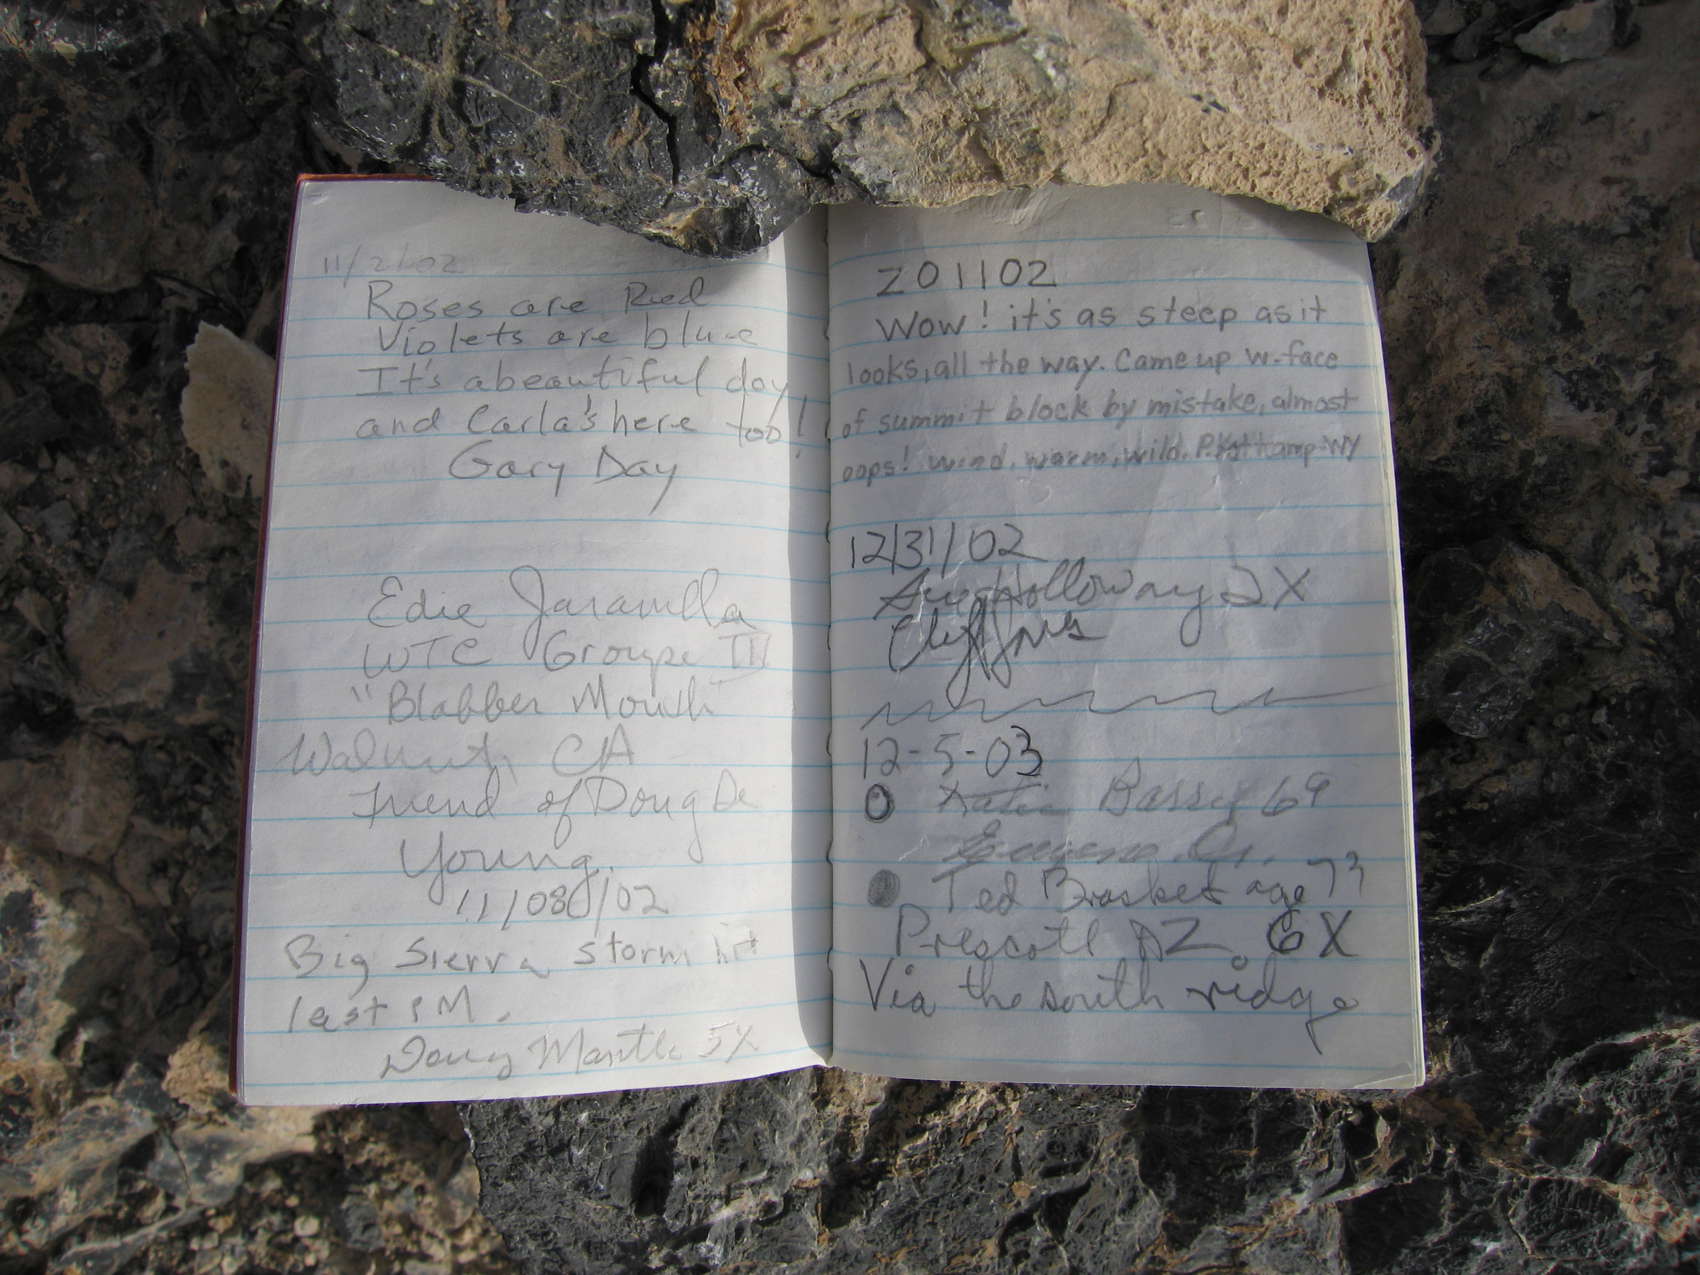 11/2/02
Roses are Red
Violets are blue
It's a beautiful day
and Carla's here too!
Gary Day
Edie Jaramilla
WTC Groupe III
"Blabber Mouth
Walnut, CA
Friend of Doug De
Young.
11/08/02
Big Sierra storm hit
last PM.
Doug Mantle 5X
201102
Wow! it's as steep as it
looks, all the way. Came up w. face
of summit block by mistake, almost
oops! wind, warm, wild. WY
12/31/02
Sue Holloway 2X
12-5-03
Katie Bassy 69
Ted Brasket age 73
Prescott AZ. 6X
Via the south ridge